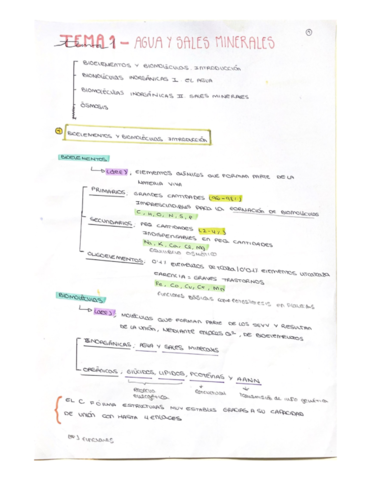 1
TEMA 1 - AGUA Y SALES MINERALES
BIOELEMENTOS Y BIOMOLÉCULAS. INTRODUCCIÓN
BIOMOLÉCULAS INORGÁNICAS I. EL AGUA
BIOMOLÉCULAS INORGÁNICAS II. SALES MINERALES
ÓSMOSIS
BIOELEMENTOS Y BIOMOLÉCULAS. INTRODUCCIÓN
BIOELEMENTOS
ELEMENTOS QUÍMICOS QUE FORMAN PARTE DE LA
MATERIA VIVA
PRIMARIOS: GRANDES CANTIDADES
IMPRESCINDIBLES PARA LA FORMACIÓN DE BIOMOLÉCULAS
C, H, O, N, S, P
SECUNDARIOS: PEQ CANTIDADES
INDISPENSABLES EN PEQ CANTIDADES
Na, K, Ca, Cl, Mg
OLIGOELEMENTOS:
CARENCIA: GRAVES TRASTORNOS
Fe, Co, Cu,
FUNCIONES BÁSICAS
BIOMOLÉCULAS
MOLÉCULAS QUE FORMAN PARTE DE LOS SSVV Y RESULTAN
DE LA UNIÓN, MEDIANTE ENLACES DE BIOELEMENTOS
INORGÁNICAS: AGUA Y SALES MINERALES
ORGÁNICAS: GLÚCIDOS, LÍPIDOS, PROTEÍNAS Y AANN
EL C FORMA ESTRUCTURAS MUY ESTABLES GRACIAS A SU CAPACIDAD
DE UNIÓN CON HASTA 4 ENLACES
FUNCIONES